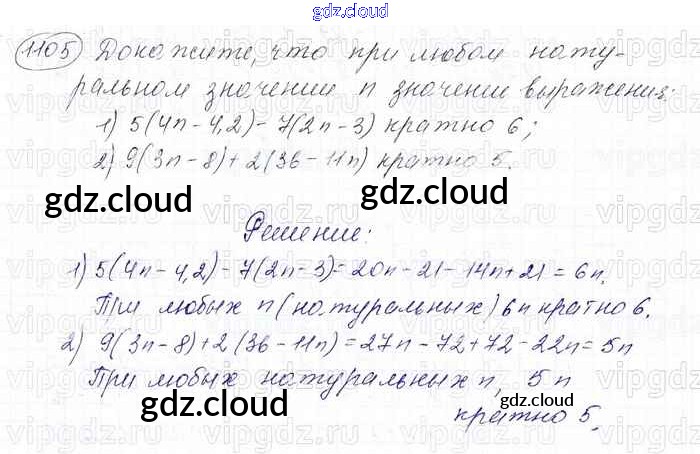 gdz.cloud
1105 Докажите, что при любом нату-
ральном значении n значении выражения:
1) 5(4n-4,2)-7(2n-3) кратно 6;
2) 9(3n-8)+2(36-11n) кратно 5.
gdz.cloud gdz.cloud
Решение:
1) 5(4n-4,2)-7(2n-3)=20n-21-14n+21=6n.
При любых n (натуральных) 6n кратно 6.
2) 9(3n-8)+2(36-11n)=27n-72+72-22n=5n
При любых натуральных n, 5n
gdz.cloud gdz.cloud
кратно 5.